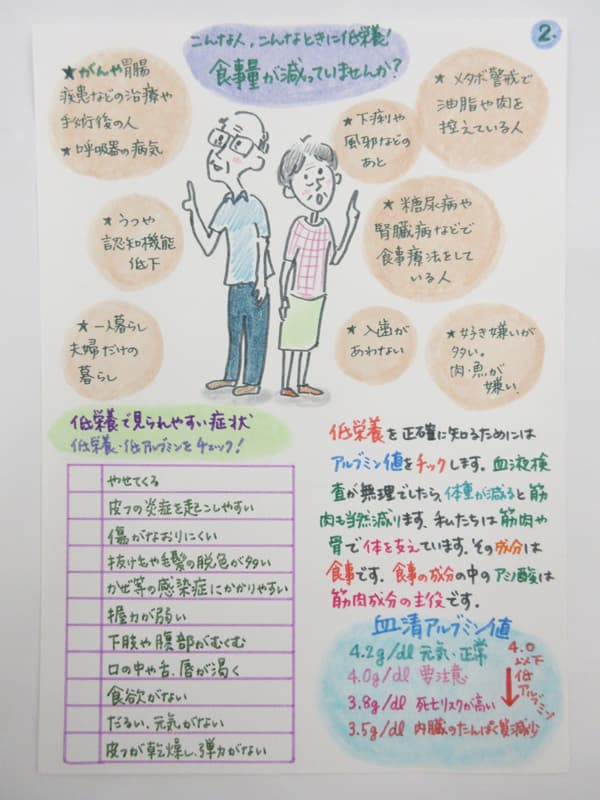 2.
こんな人、こんなときに低栄養!
食事量が減っていませんか?
★がんや胃腸
疾患などの治療や
手術後の人
★呼吸器の病気
★下痢や
風邪などの
あと
★メタボ警戒で
油脂や肉を
控えている人
★うつや
認知機能
低下
★糖尿病や
腎臓病などで
食事療法をして
いる人
★一人暮らし
夫婦だけの
暮らし
★入歯が
あわない
★好き嫌いが
多い。
肉・魚が
嫌い。
低栄養で見られやすい症状
低栄養・低アルブミンをチェック!
やせてくる
皮フの炎症を起こしやすい
傷がなおりにくい
抜け毛や毛髪の脱色が多い
かぜ等の感染症にかかりやすい
握力が弱い
下肢や腹部がむくむ
口の中や舌、唇が渇く
食欲がない
だるい、元気がない
皮フが乾燥し、弾力がない
低栄養を正確に知るためには
アルブミン値をチックします。血液検
査が無理でしたら、体重が減ると筋
肉も当然減ります。私たちは筋肉や
骨で体を支えています。その成分は
食事です。食事の成分の中のアミノ酸は
筋肉成分の主役です。
血清アルブミン値
4.2g/dl 元気・正常
4.0g/dl 要注意
3.8g/dl 死亡リスクが高い
3.5g/dl 内臓のたんぱく質減少
4.0
以下
低
アルブミン